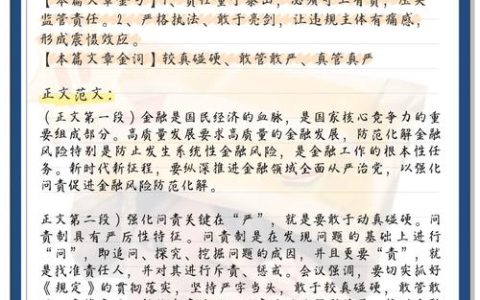 监管责任。2、严格执法、敢于亮剑，让违规主体有痛感，
形成震慑效应。
【本篇文章金词】较真碰硬、敢管敢严、真管真严
正文范文：
（正文第一段）金融是国民经济的血脉，是国家核心竞争力的重
要组成部分。高质量发展要求高质量的金融发展，防范化解金融
风险特别是防止发生系统性金融风险，是金融工作的根本性任
务。新时代新征程，要纵深推进金融领域全面从严治党，以强化
问责促进金融风险防范化解。
正文第二段）强化问责关键在“严”，就是要敢于动真碰硬。问
责制具有严厉性特征。问责制是在发现问题的基础上进行
“问”，即追问、探究、挖掘问题的成因，并且更要“责”，就
是找准责任人，并对其进行斥责、惩戒。会议强调，要切实抓好
《规定》的贯彻落实，坚持严字当头，敢于较真碰硬，敢管敢